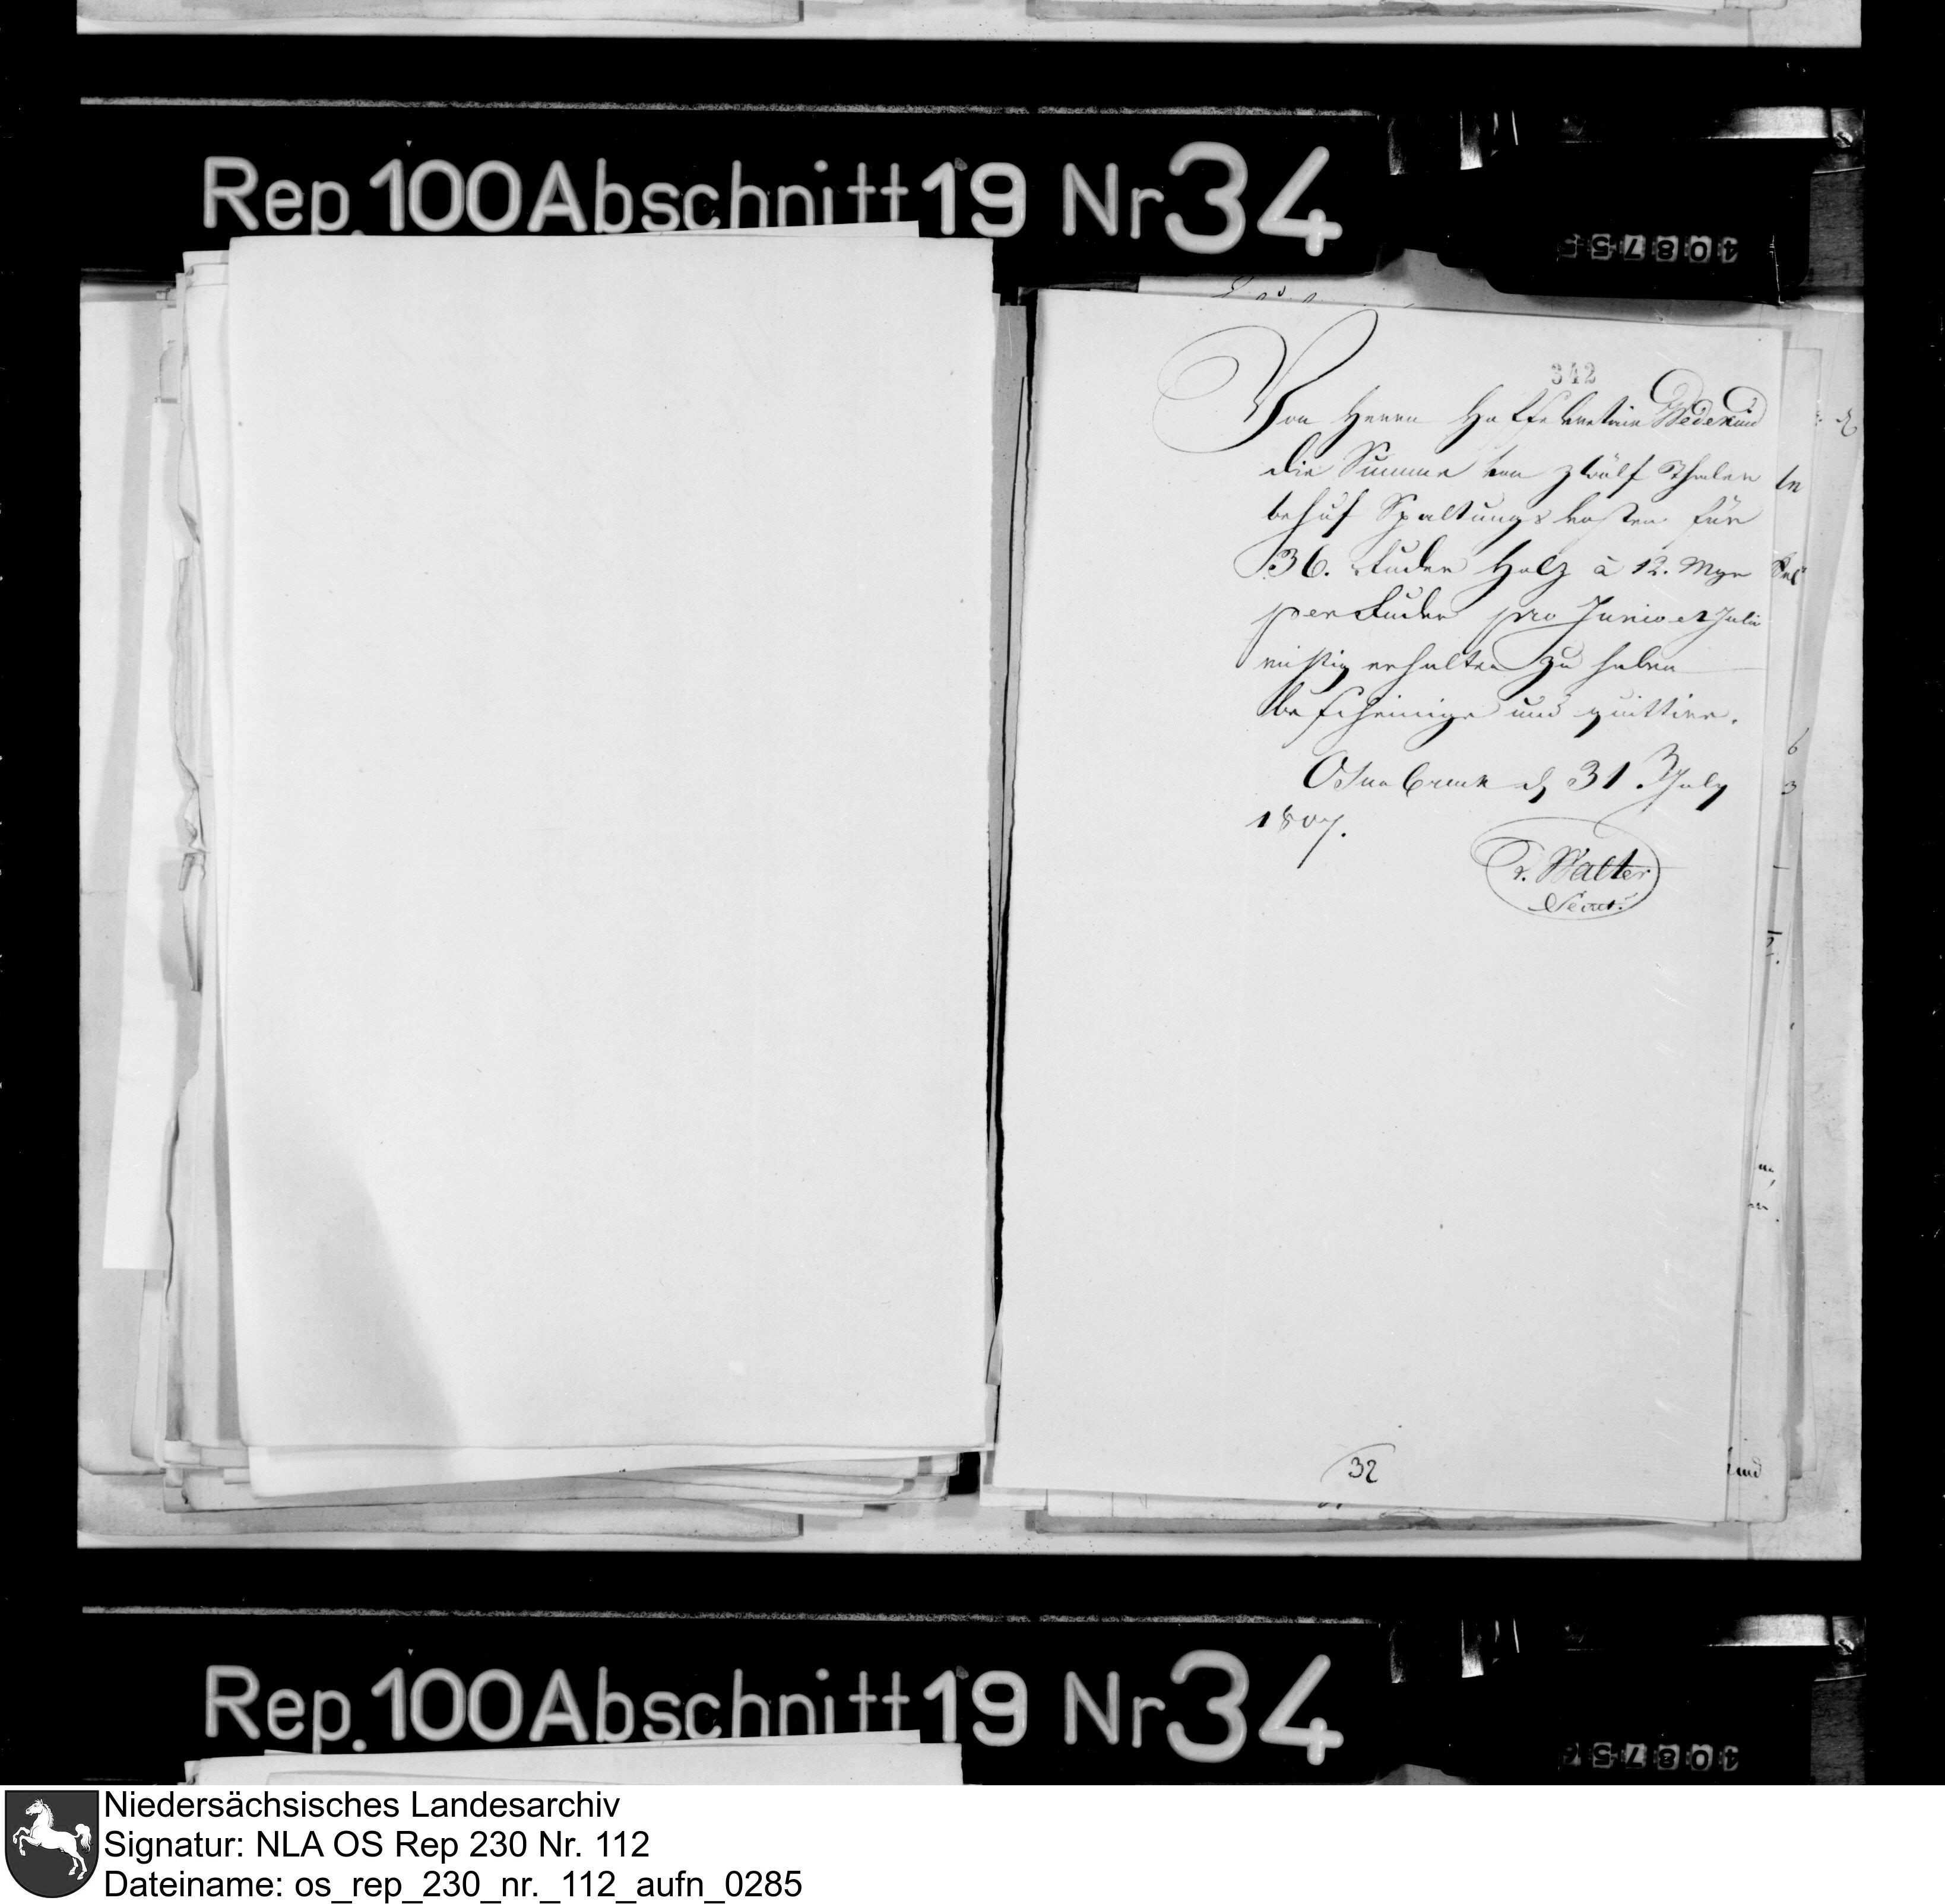 Rep. 100 Abschnitt 19 Nr 34
342
Von Herrn Hoffourier Wedekind
die Summe von zwölf Thaler
behuf Spaltungs kosten für
36. Fuder Holz à 12. Mgr
per Fuder pro Junio et Julio
richtig erhalten zu haben
bescheinige und quittire.
Osnabruck d 31 July
1807.
v. Walter
32
Rep. 100 Abschnitt 19 Nr 34
Niedersächsisches Landesarchiv
Signatur: NLA OS Rep 230 Nr. 112
Dateiname: os_rep_230_nr._112_aufn_0285